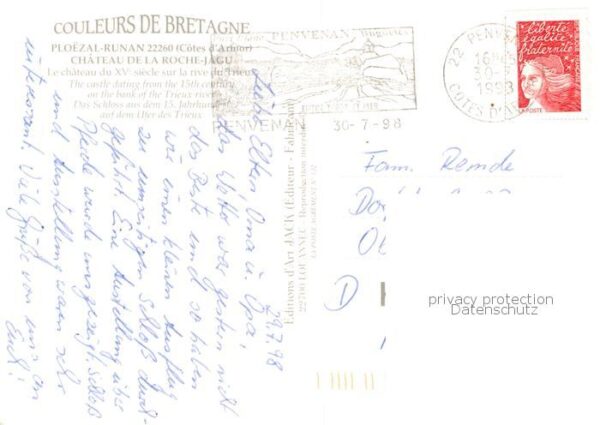 COULEURS DE BRETAGNE
PLOËZAL-RUNAN 22260 (Côtes d'Armor)
CHÂTEAU DE LA ROCHE-JAGU
Le château du XVe siècle sur la rive du Trieux
The castle dating from the 15th century
on the bank of the Trieux river
Das Schloss aus dem 15. Jahrhundert
auf dem Ufer des Trieux.
PENVENAN, Buguélès
PENVENAN
30-7-98
22 PENVENAN
16H
30-
1998
CÔTES D'AR
liberté
égalité
fraternité
LA POSTE
Editions d'Art JACK (Editeur - Fabricant)
22700 LOUANNEC - Reproduction interdite
29.7.98
Liebe Eltern, Oma u. Opa,
das Wetter war gestern nicht
das Beste und so haben
wir einen kleinen Ausflug
zu umseitigem Schloß durch-
geführt. Eine Ausstellung über
Pferde wurde uns gezeigt. Schloß
und Ausstellung waren sehr
interessant. Viele Grüße von uns an
Euch!
Fam. Remde
Do
O
D
privacy protection
Datenschutz